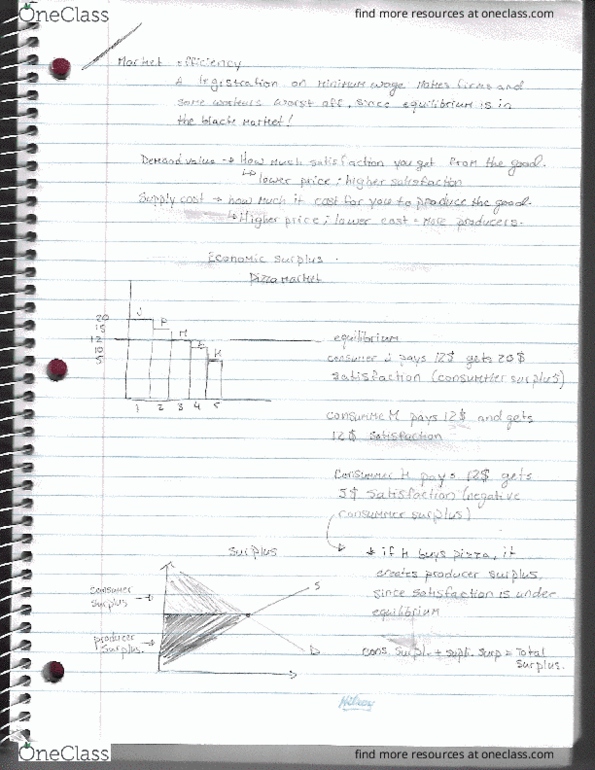 OneClass
find more resources at oneclass.com
Market efficiency
A legistration on minimum wage makes firms and
some workers worst off, since equilibrium is in
the black market!
Demand value → How much satisfaction you get from the good.
↳ lower price ; higher satisfaction
Supply cost → how much it cost for you to produce the good.
↳ Higher price ; lower cost = more producers.
Economic surplus
Pizza market
20
15
12
10
5
J
P
M
H
1 2 3 4 5
equilibrium
consumer J pays 12$ gets 20$
satisfaction (consummer surplus)
consumme M pays 12$ and gets
12$ satisfaction
Consummer H pays 12$ gets
5$ satisfaction (negative
consummer surplus)
if H buys pizza, it
creates producer surplus,
since satisfaction is under
equilibrium
Surplus
consumer surplus
producer surplus.
S
D
cons. surpl. + suppl. surp = Total
surplus.
Hilroy
OneClass
find more resources at oneclass.com